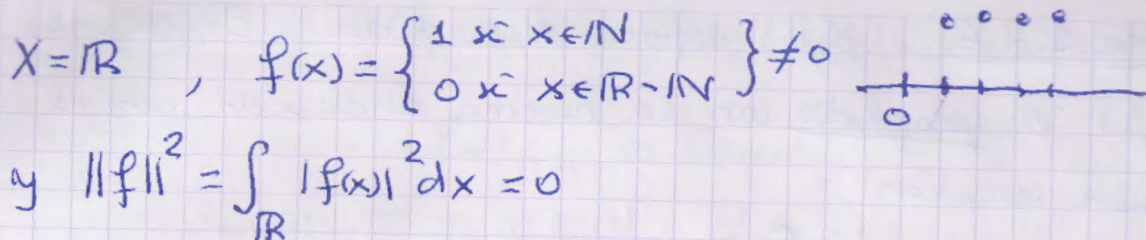 X = ℝ , f(x) = { 1 si x ∈ ℕ
0 si x ∈ ℝ - ℕ } ≠ 0
0
y ||f||² = ∫_ℝ |f(x)|² dx = 0